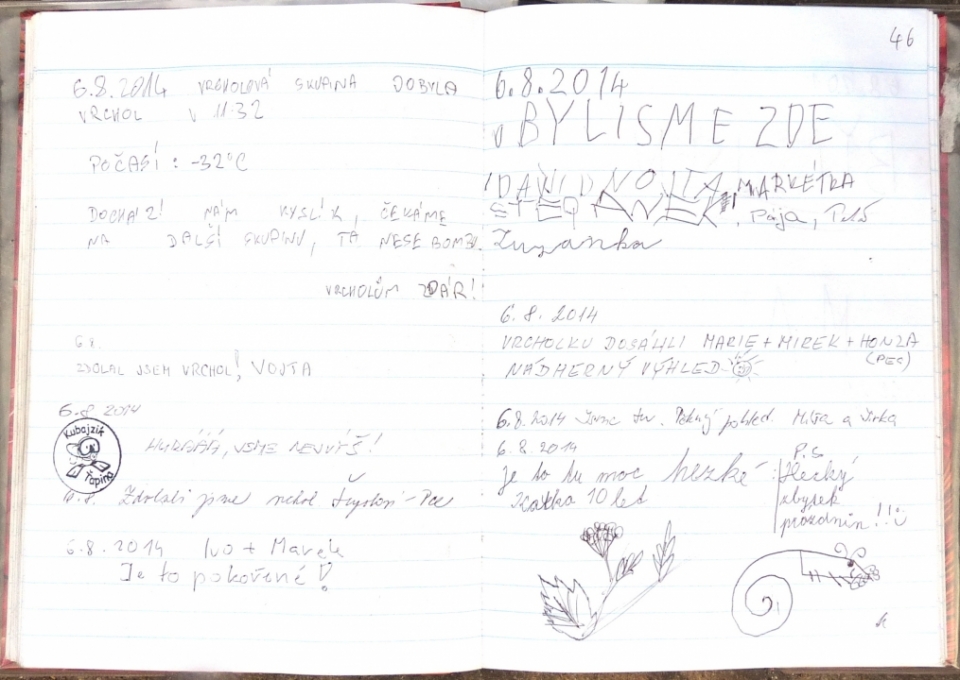 6.8.2014 VRCHOLOVÁ SKUPINA DOBYLA
VRCHOL V 11:32
POČASÍ : -32°C
DOCHÁZÍ NÁM KYSLÍK, ČEKÁME
NA DALŠÍ SKUPINU, TA NESE BOMBY.
VRCHOLŮM ZDAR!
6.8.
ZDOLAL JSEM VRCHOL! VOJTA
6.8.2014
Kubajzik
Ťapina
HURÁÁÁ, JSME NEJVÝŠ!
6.8. Zdolali jsme
6.8.2014 Ivo + Marek
Je to pokořené!
46
6.8.2014
BYLI SME ZDE
DAVID VOJTA MARKÉTKA
Pája,
Zuzanka
6.8. 2014
VRCHOLKU DOSÁHLI MARIE + MIREK + HONZA
(PES)
NÁDHERNÝ VÝHLED
6.8.2014 Pěkný pohled a Jirka
6.8.2014
Je to tu moc hezké
Katka 10 let
P.S
Hezký
zbytek
prázdnin!!